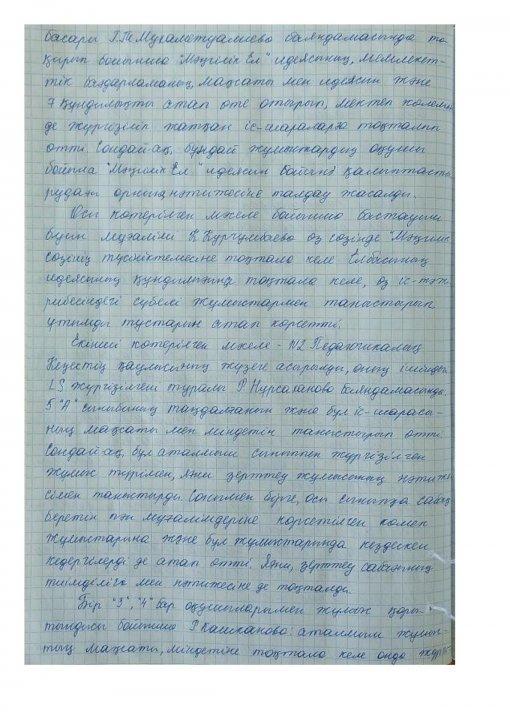 басары Г.Т.Мухаметдалиева баяндамасында та-
қырып бойынша "Мәңгілік Ел" идеясының, мемлекет-
тік бағдарламаның мақсаты мен идеясын және
7 құндылықты атап өте отырып, мектеп көлемін-
де жүргізіліп жатқан іс-шараларға тоқталып
өтті. Сондай-ақ, бұндай жұмыстардың оқушы
бойына "Мәңгілік Ел" идеясын бойына қалыптасты-
рудағы орны, нәтижесіне талдау жасалды.
Осы көтерілген мәселе бойынша бастауыш
буын мұғалімі К.Кургумбаева өз сөзінде "Мәңгілік
сөзінің түсініктемесіне тоқтала келе Елбасының
идеясының құндылығына тоқтала келе, өз іс-тәж-
рибесіндегі сүбелі жұмыстармен таныстырып
ұтымды тұстарын атап көрсетті.
Екінші көтерілген мәселе - №2 Педагогикалық
Кеңестің қаулысының жүзеге асырылуы, оның ішінде
LS жүргізілгені туралы Г.Нурсаганова баяндамасында,
5 "А" сыныбының таңдалғанын және бұл іс-шараcы-
ның мақсаты мен міндетін таныстырып өтті.
Сондай-ақ, бұл аталмыш сыныппен жүргізілген
жұмыс түрімен, яғни зерттеу жұмысының нәтиже-
сімен таныстырды. Сонымен бірге, осы сыныпқа сабақ
беретін пән мұғалімдеріне көрсетілген көмек
жұмыстарына және бұл жұмыстарында кездескен
кедергілерді де атап өтті. Яғни, зерттеу сабағының
тиімділігі мен нәтижесіне де тоқталды.
Бір "3", "4" бар оқушыларымен жұмыс қоры-
тындысы бойынша Г.Кашканова: аталмыш жұмыс-
тың мақсаты, міндетіне тоқтала келе онда